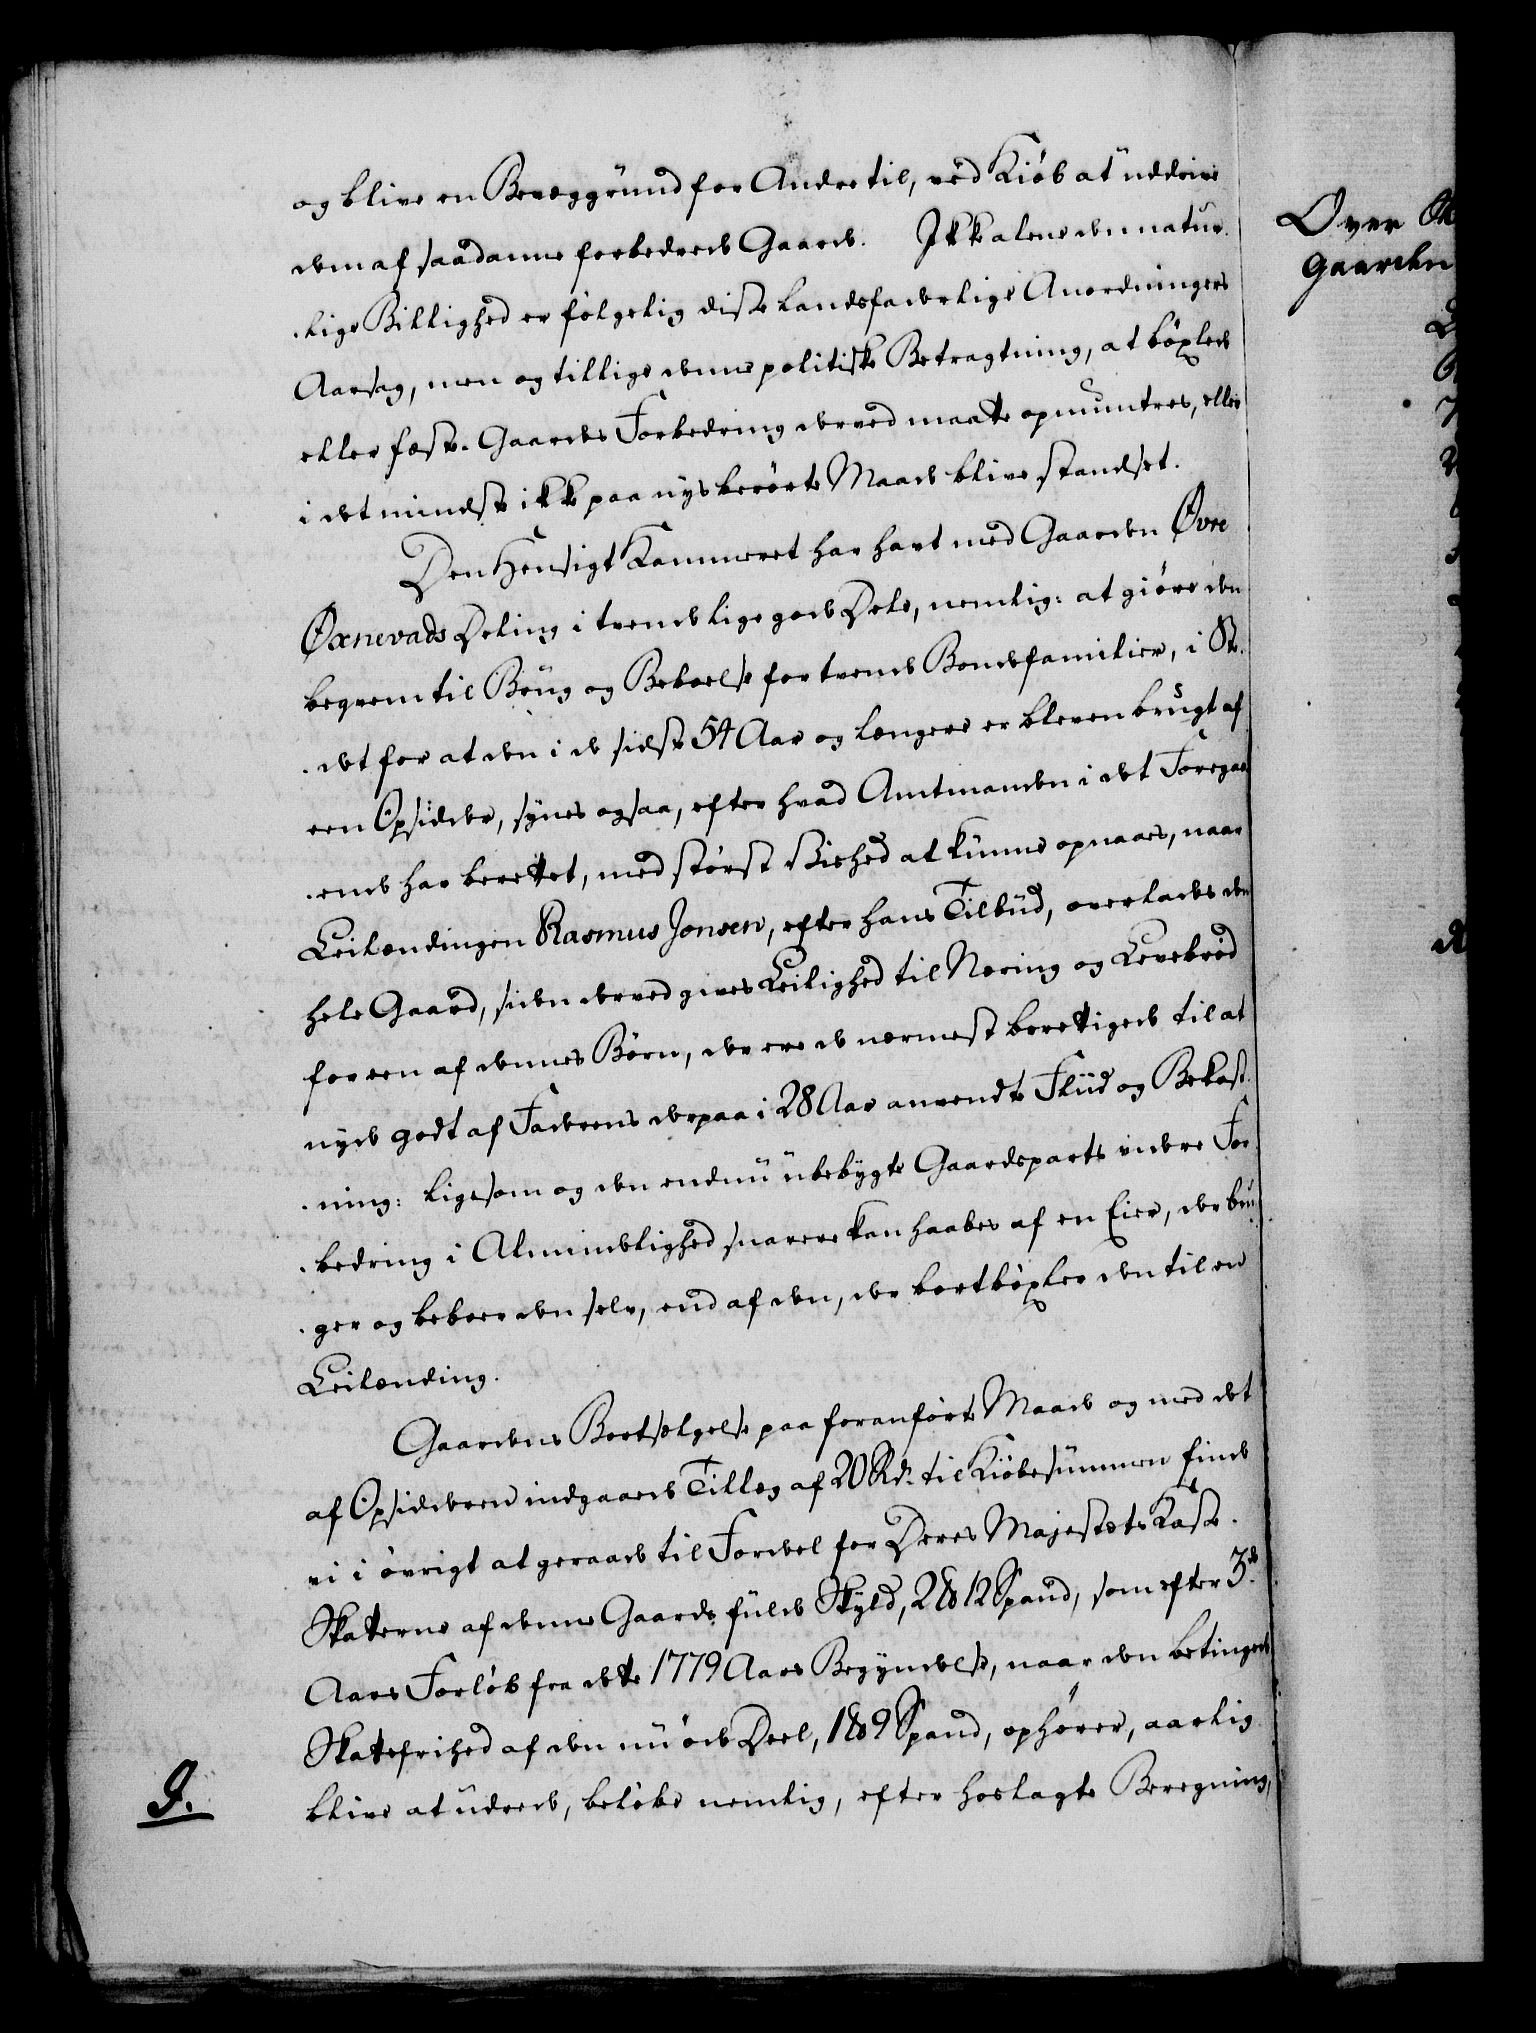 og blive en Bevæggrund for Andre til, ved Kiøb at uddrive
dem af saadanne forbedrede Gaarde. Ikke alene den natur-
lige Billighed er følgelig disse landsfaderlige Anordningers
Aarsag, men og tillige denne politiske Betragtning, at bøxlede
eller fæste-Gaardes Forbedring derved maatte opmuntres, eller
i det mindste ikke paa nys berørte Maade blive standset.
Den Hensigt Kammeret har havt med Gaarden Øvre
Øxnevads Deling i tvende lige gode Dele, nemlig: at giøre den
beqvem til Brug og Beboelse for tvende Bondefamilier, i Ste-
det for at den i de sidste 54 Aar og længere er bleven brugt af
een Opsidder, synes ogsaa, efter hvad Amtmanden i det Foregaa-
ende har berettet, med størst Vished at kunne opnaaes, naar
Leilændingen Rasmus Jonsen, efter hans Tilbud, overlades den
hele Gaard, siden derved gives Leilighed til Næring og Levebrød
for een af dennes Børn, der ere de nærmest berettigede til at
nyde godt af Faderens derpaa i 28 Aar anvendte Fliid og Bekost-
ning: ligesom og den endnu ubebygte Gaardsparts videre For-
bedring i Almindelighed snarere kan haabes af en Eier, der bru-
ger og beboer den selv, end af den, der bortbøxler den til en
Leilænding.
Gaardens Bortsælgelse paa foranførte Maade og med det
af Opsidderen indgaaede Tillæg af 20 Rdr. til Kiøbesummen finde
vi i øvrigt at geraade til Fordel for Deres Majestæts Kasse.
Skatterne af denne Gaards fulde Skyld, 2 Pd 12 Spand, som efter 3de
Aars Forløb fra dette 1779 Aars Begyndelse, naar den betingede
Skattefrihed af den nu øde Deel, 1 Pd 9 Spand, ophører, aarlig
blive at udrede, beløbe nemlig, efter hoslagte Beregning,
9.
Over
Gaarden